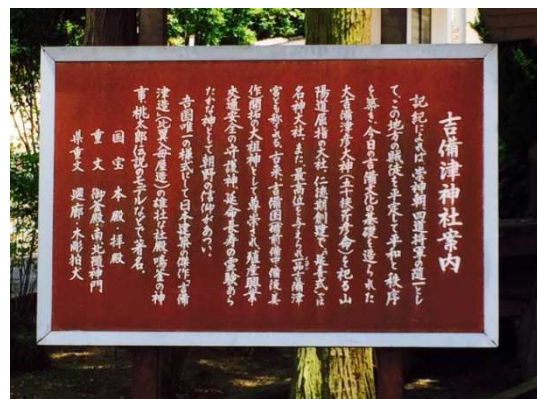 吉備津神社案内
記紀によれば、崇神朝、四道将軍の随一とし
て、この地方の賊徒を平定して平和と秩序
を築き、今日の吉備文化の基礎を造られた
大吉備津彦大神(五十狭芹彦命)を祀る山
陽道屈指の大社。仁徳期創建で、延喜式は
名神大社、また、最高位を与られ一品吉備津
宮とも称される。古来、吉備国備前備中備後美
作開拓の大祖神として尊崇され、殖産興業
交通安全の守護神、延命長寿の霊験あら
たかな神として朝野の信仰があつい。
吾国唯一の様式にして日本建築の傑作、吉備
津造(比翼入母屋造)の雄壮な社殿、鳴釜の神
事、桃太郎伝説のモデルなどで著名。
国宝 本殿・拝殿
重文 御釜殿南北随神門
県重文 廻廊・木彫狛犬